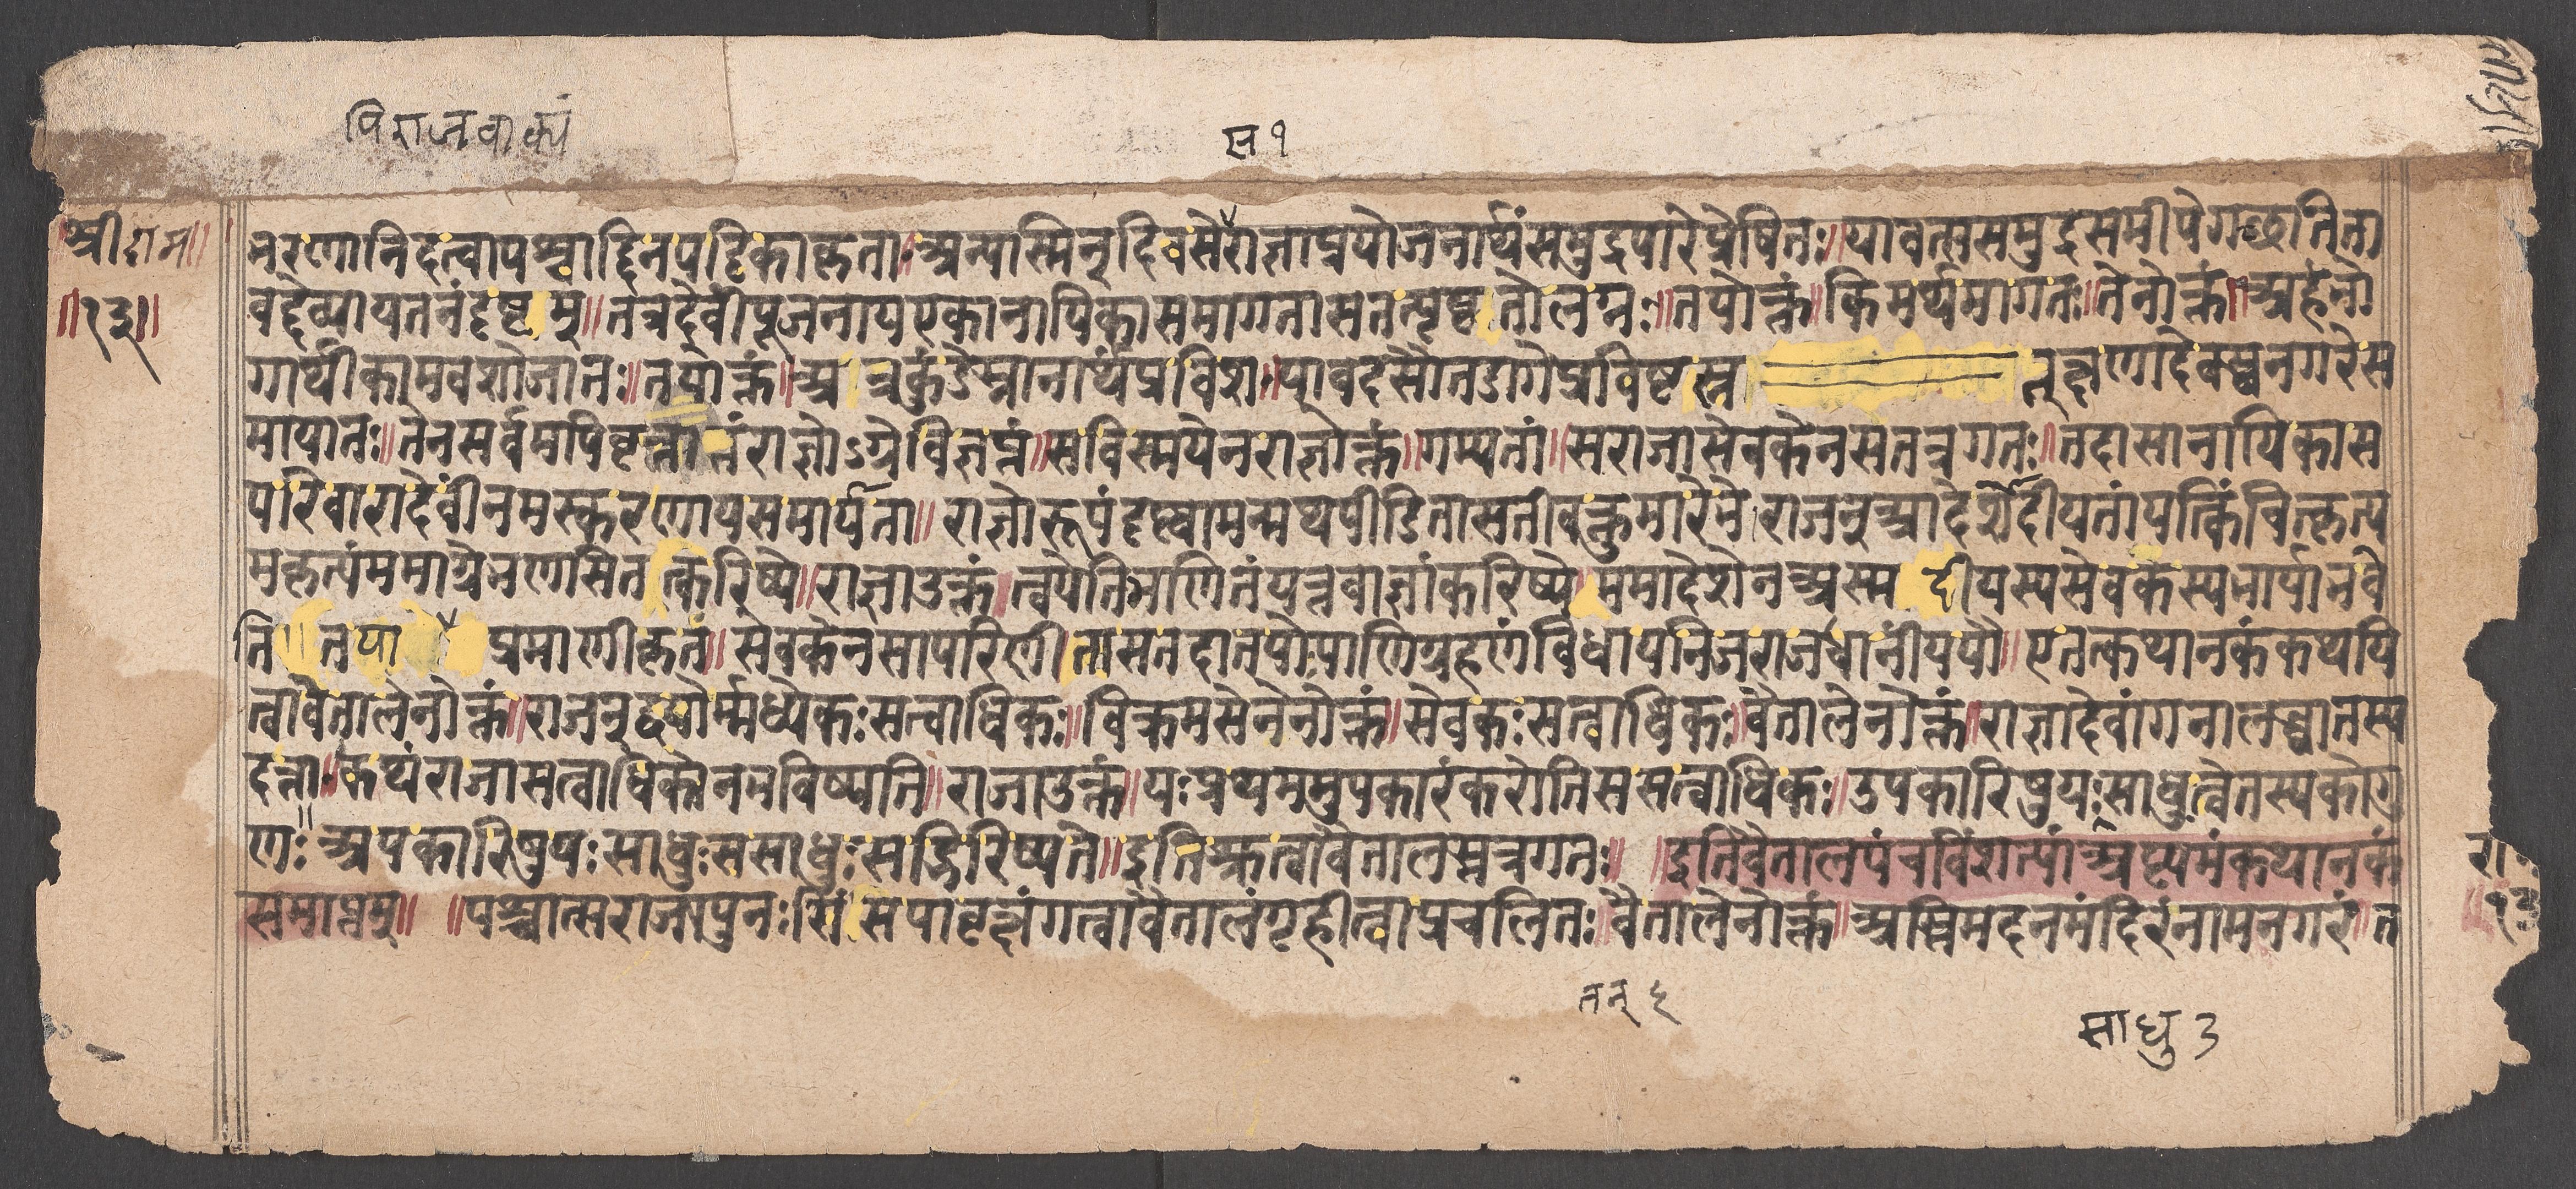 पि राजवाक्यं
स १
श्रीराम
॥१३॥
भरणानिदत्वापश्चाद्दिनपट्टिकाकृता॥अन्यास्मिन्दिवसेराज्ञाप्रयोजनार्थंसमुद्रपारेप्रेषितः॥यावत्ससमुद्रसमीपेगच्छतिता
वद्देव्यायतनंदृष्टम्॥तत्रदेवीपूजनायएकानायिकासमागतासतत्पृष्ठतोलग्नः॥तयोक्तं॥किमर्थमागतः॥तेनोक्तं॥अहंभो
गार्थीकामवशोजातः॥तयोक्तं॥अत्रकुंडेस्नानार्थंप्रविश॥यावदसौतडागेप्रविष्टस्त तत्क्षणादेवस्वनगरेस
मायातः॥तेनसर्वमपिवृत्तांतंराज्ञोऽग्रेविज्ञप्तं॥सविस्मयेनराज्ञोक्तं॥गम्यतां॥सराजासेवकेनसतत्रगतः॥तदासानायिकास
परिवारादेवींनमस्करणायसमायाता॥राज्ञोरूपंदृष्ट्वामन्मथपीडितासतीवक्तुमारेभे॥राजन्आदेशोदीयतांयत्किंचित्कृत्य
मकृत्यंममाग्रेभणसितत्करिष्ये॥राज्ञाउक्तं॥त्वयेतिभणितंयत्तवाज्ञांकरिष्ये॥ममादेशेनअस्मदीयस्यसेवकस्यभार्याभवे
ति॥तया प्रमाणीकृतं॥सेवकेनसापरिणीतासतदानृपोपाणिग्रहणंविधायनिजराजधानींययौ॥एतत्कथानकंकथयि
त्वावेतालेनोक्तं॥राजन्द्वयोर्म्मध्येकःसत्वाधिकः॥विक्रमसेनेनोक्तं॥सेवकःसत्वाधिकः॥वेतालेनोक्तं॥राज्ञादेवांगनालब्ध्वातस्य
दत्ता॥कथंराजासत्वाधिकोनभविष्यति॥राजाउक्तं॥यःप्रथममुपकारंकरोतिससत्वाधिकः॥उपकारिषुयःसाधुत्वेतस्यकोगु
णः॥अपकारिषुयःसाधुःससाधुःसद्भिरिष्यते॥इतिश्रुत्वावेतालस्तत्रगतः॥ ॥इतिवेतालपंचविंशत्यांअष्टमंकथानकं
समाप्तम्॥ ॥पश्चात्सराजापुनःशिंसपावृक्षंगत्वावेतालंगृहीत्वाप्रचलितः॥वेतालेनोक्तं॥अस्तिमदनमंदिरंनामनगरं॥त
रा
१३
तत् ६
साधु ३